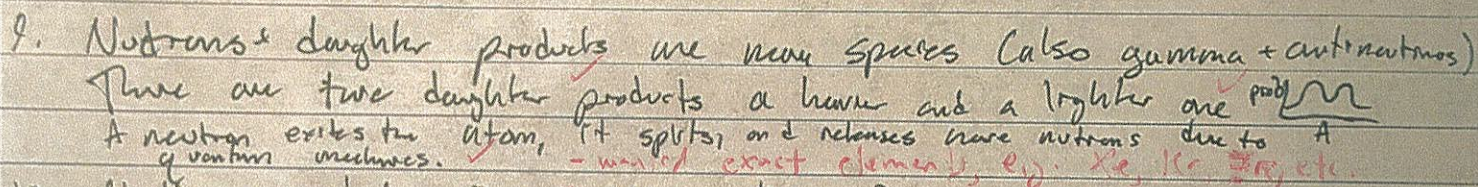 9. Nutrons & daughter products are main species (also gamma + antineutrinos)
There are two daughter products a havier and a lighter one prob A
A neutron exites the atom, it splits, and releases more nutrons due to
quantum mechanics. - wanted exact elements, e.g. Xe, Kr, etc.